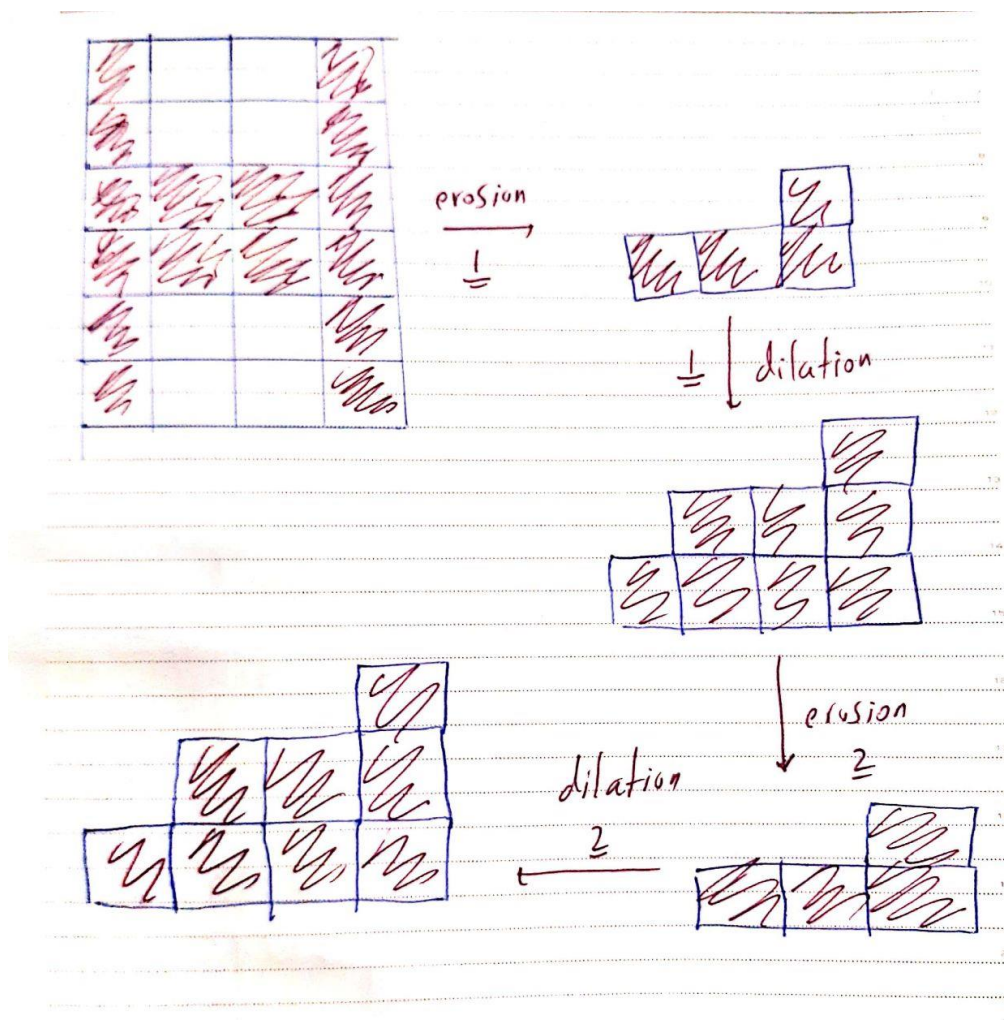 erosion
1
1
dilation
erosion
2
dilation
2